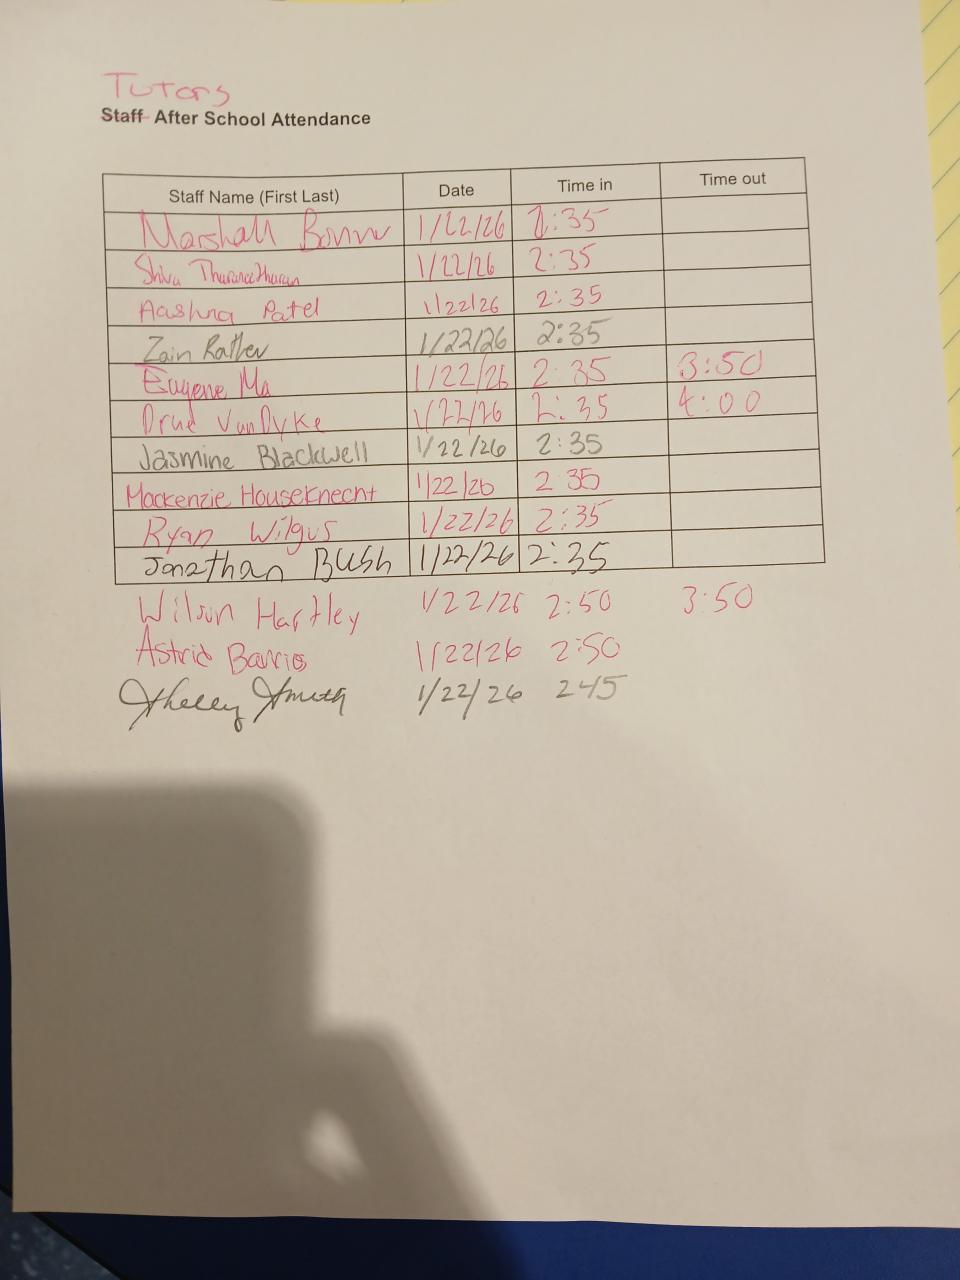 Tutors
Staff After School Attendance
Staff Name (First Last) Date Time in Time out
Marshall 1/22/26 2:35
Shiva 1/22/26 2:35
Aashna Patel 1/22/26 2:35
Zain 1/22/26 2:35
Eugene Ma 1/22/26 2:35 3:50
VanDyke 1/22/26 2:35 4:00
Jasmine Blackwell 1/22/26 2:35
Mackenzie Houseknecht 1/22/26 2 35
Ryan Wilgus 1/22/26 2:35
Jonathan Bush 1/22/26 2:35
Wilson Hartley 1/22/26 2:50 3:50
Astrid Barrios 1/22/26 2:50
Shelly Smith 1/22/26 245